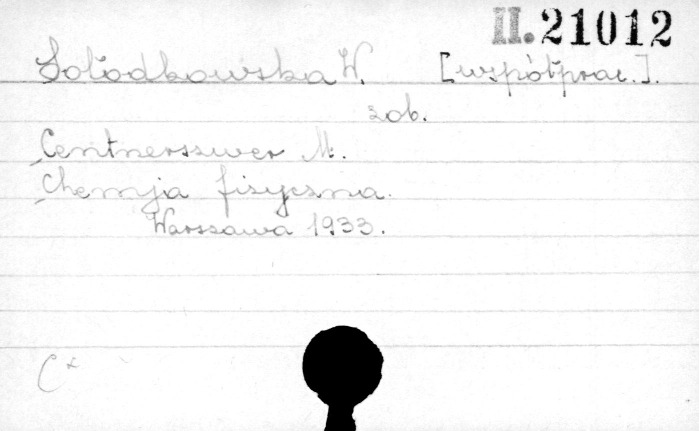 II. 21012
Sołodkowska W. [współprac.].
zob.
Centnerszwer M.
Chemja fizyczna.
Warszawa 1933.
C*